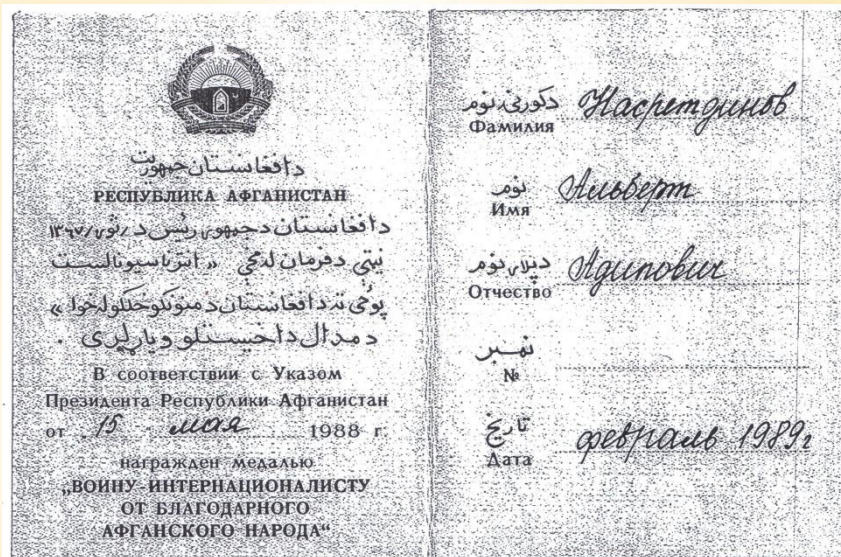 دافغانستان جمهوريت
РЕСПУБЛИКА АФГАНИСТАН
دافغانستان دجمهور رئیس د
نیټې دفرمان له مخې « انترناسیونالیست
پوځي ته دافغانستان
دمډال داخیستلو ویاړلری .
В соответствии с Указом
Президента Республики Афганистан
от 15 мая 1988 г.
награжден медалью
„ВОИНУ-ИНТЕРНАЦИОНАЛИСТУ
ОТ БЛАГОДАРНОГО
АФГАНСКОГО НАРОДА“
دکورنی نوم Насретдинов
Фамилия
نوم Альберт
Имя
دپلار نوم Адипович
Отчество
نمبر
№
تاریخ февраль 1989г
Дата